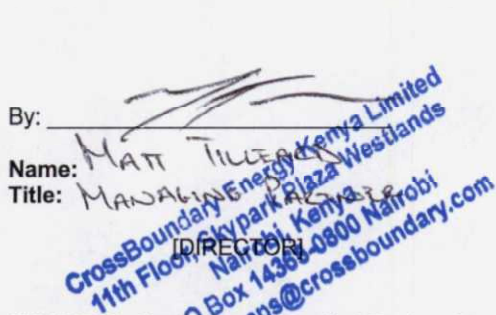 By:
Name: MATT TILLEARD
Title: MANAGING PARTNER
[DIRECTOR]
CrossBoundary Energy Kenya Limited
11th Floor Skypark Plaza Westlands
Nairobi, Kenya
O Box 14369-0800 Nairobi
ns@crossboundary.com